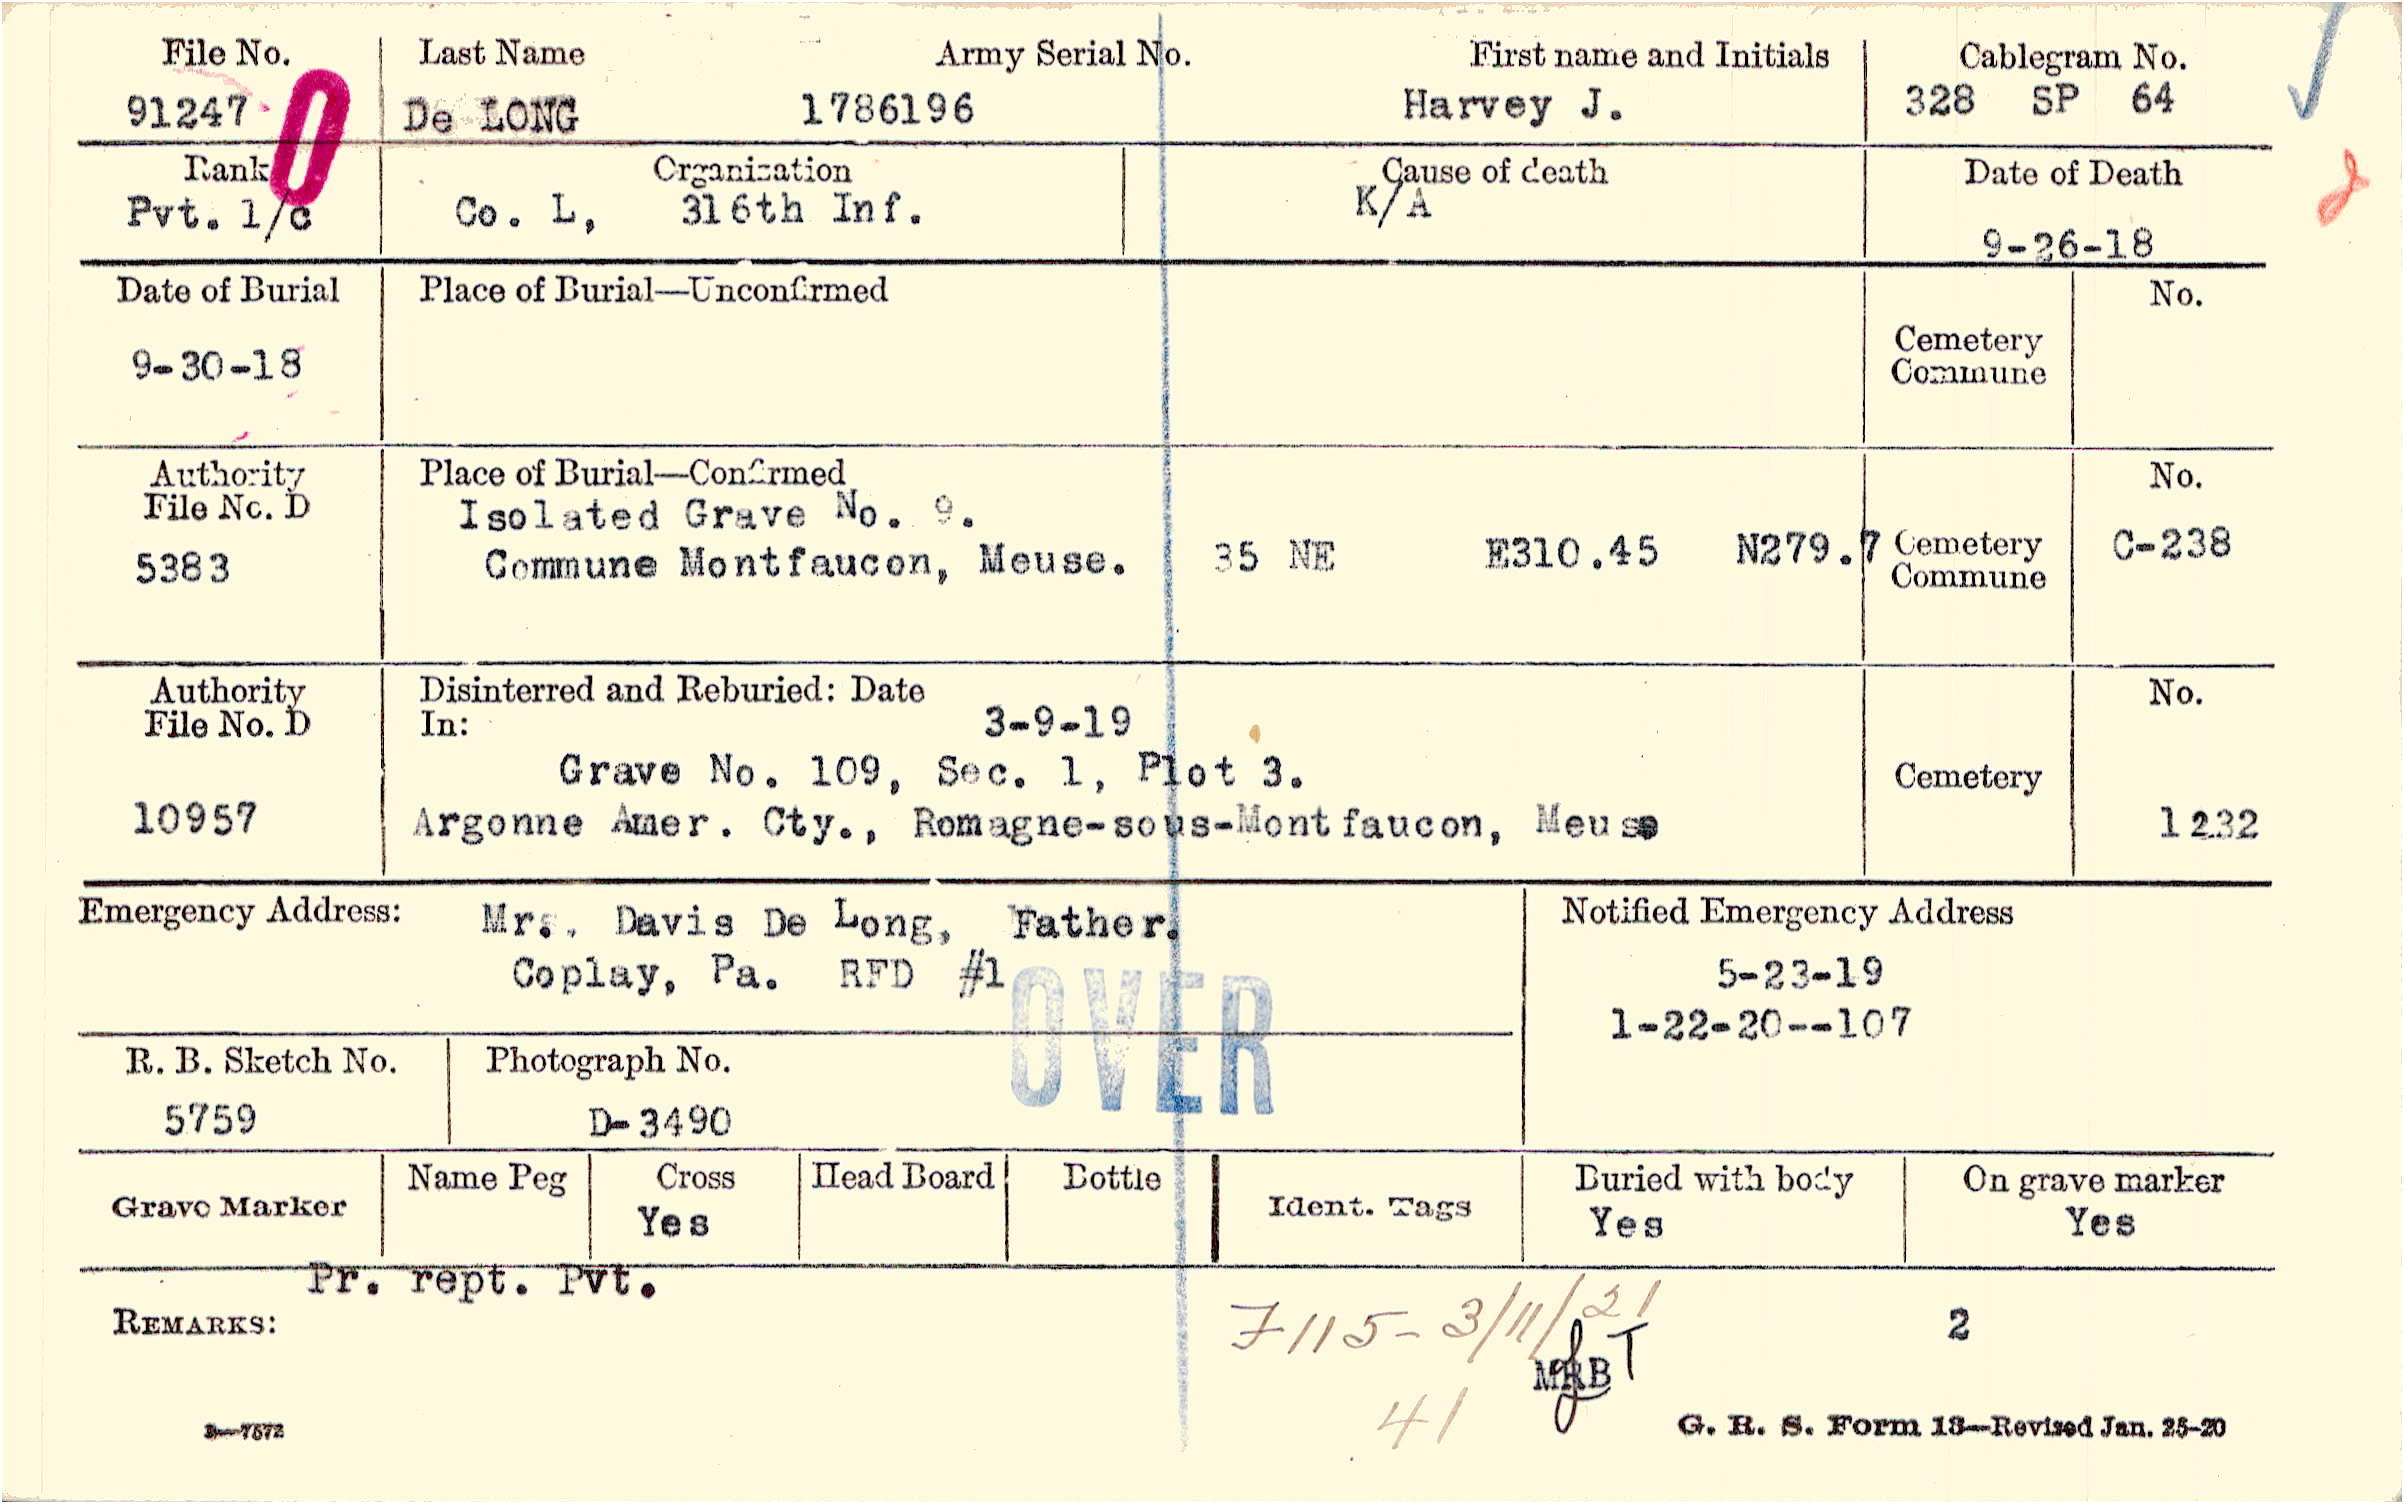 File No. Last Name Army Serial No. First name and Initials Cablegram No.
91247 De LONG 1786196 Harvey J. 328 SP 64
Rank Organization Cause of death Date of Death
Pvt. 1/c Co. L, 316th Inf. K/A 9-26-18
Date of Burial Place of Burial—Unconfirmed No.
9-30-18 Cemetery
Commune
Authority Place of Burial—Confirmed No.
File No. D Isolated Grave No. 9.
5383 Commune Montfaucon, Meuse. 35 NE E310.45 N279.7 Cemetery C-238
Commune
Authority Disinterred and Reburied: Date No.
File No. D In: 3-9-19
Grave No. 109, Sec. 1, Plot 3. Cemetery
10957 Argonne Amer. Cty., Romagne-sous-Montfaucon, Meuse 1232
Emergency Address: Mr. Davis De Long, Father. Notified Emergency Address
Coplay, Pa. RFD #1 5-23-19
OVER 1-22-20--107
R. B. Sketch No. Photograph No.
5759 D-3490
Grave Marker Name Peg Cross Head Board Bottle Ident. Tags Buried with body On grave marker
Yes Yes Yes
Pr. rept. Pvt.
REMARKS: 7115- 3/11/21 2
MRB T
41
3—7572 G. R. S. Form 13—Revised Jan. 25-20